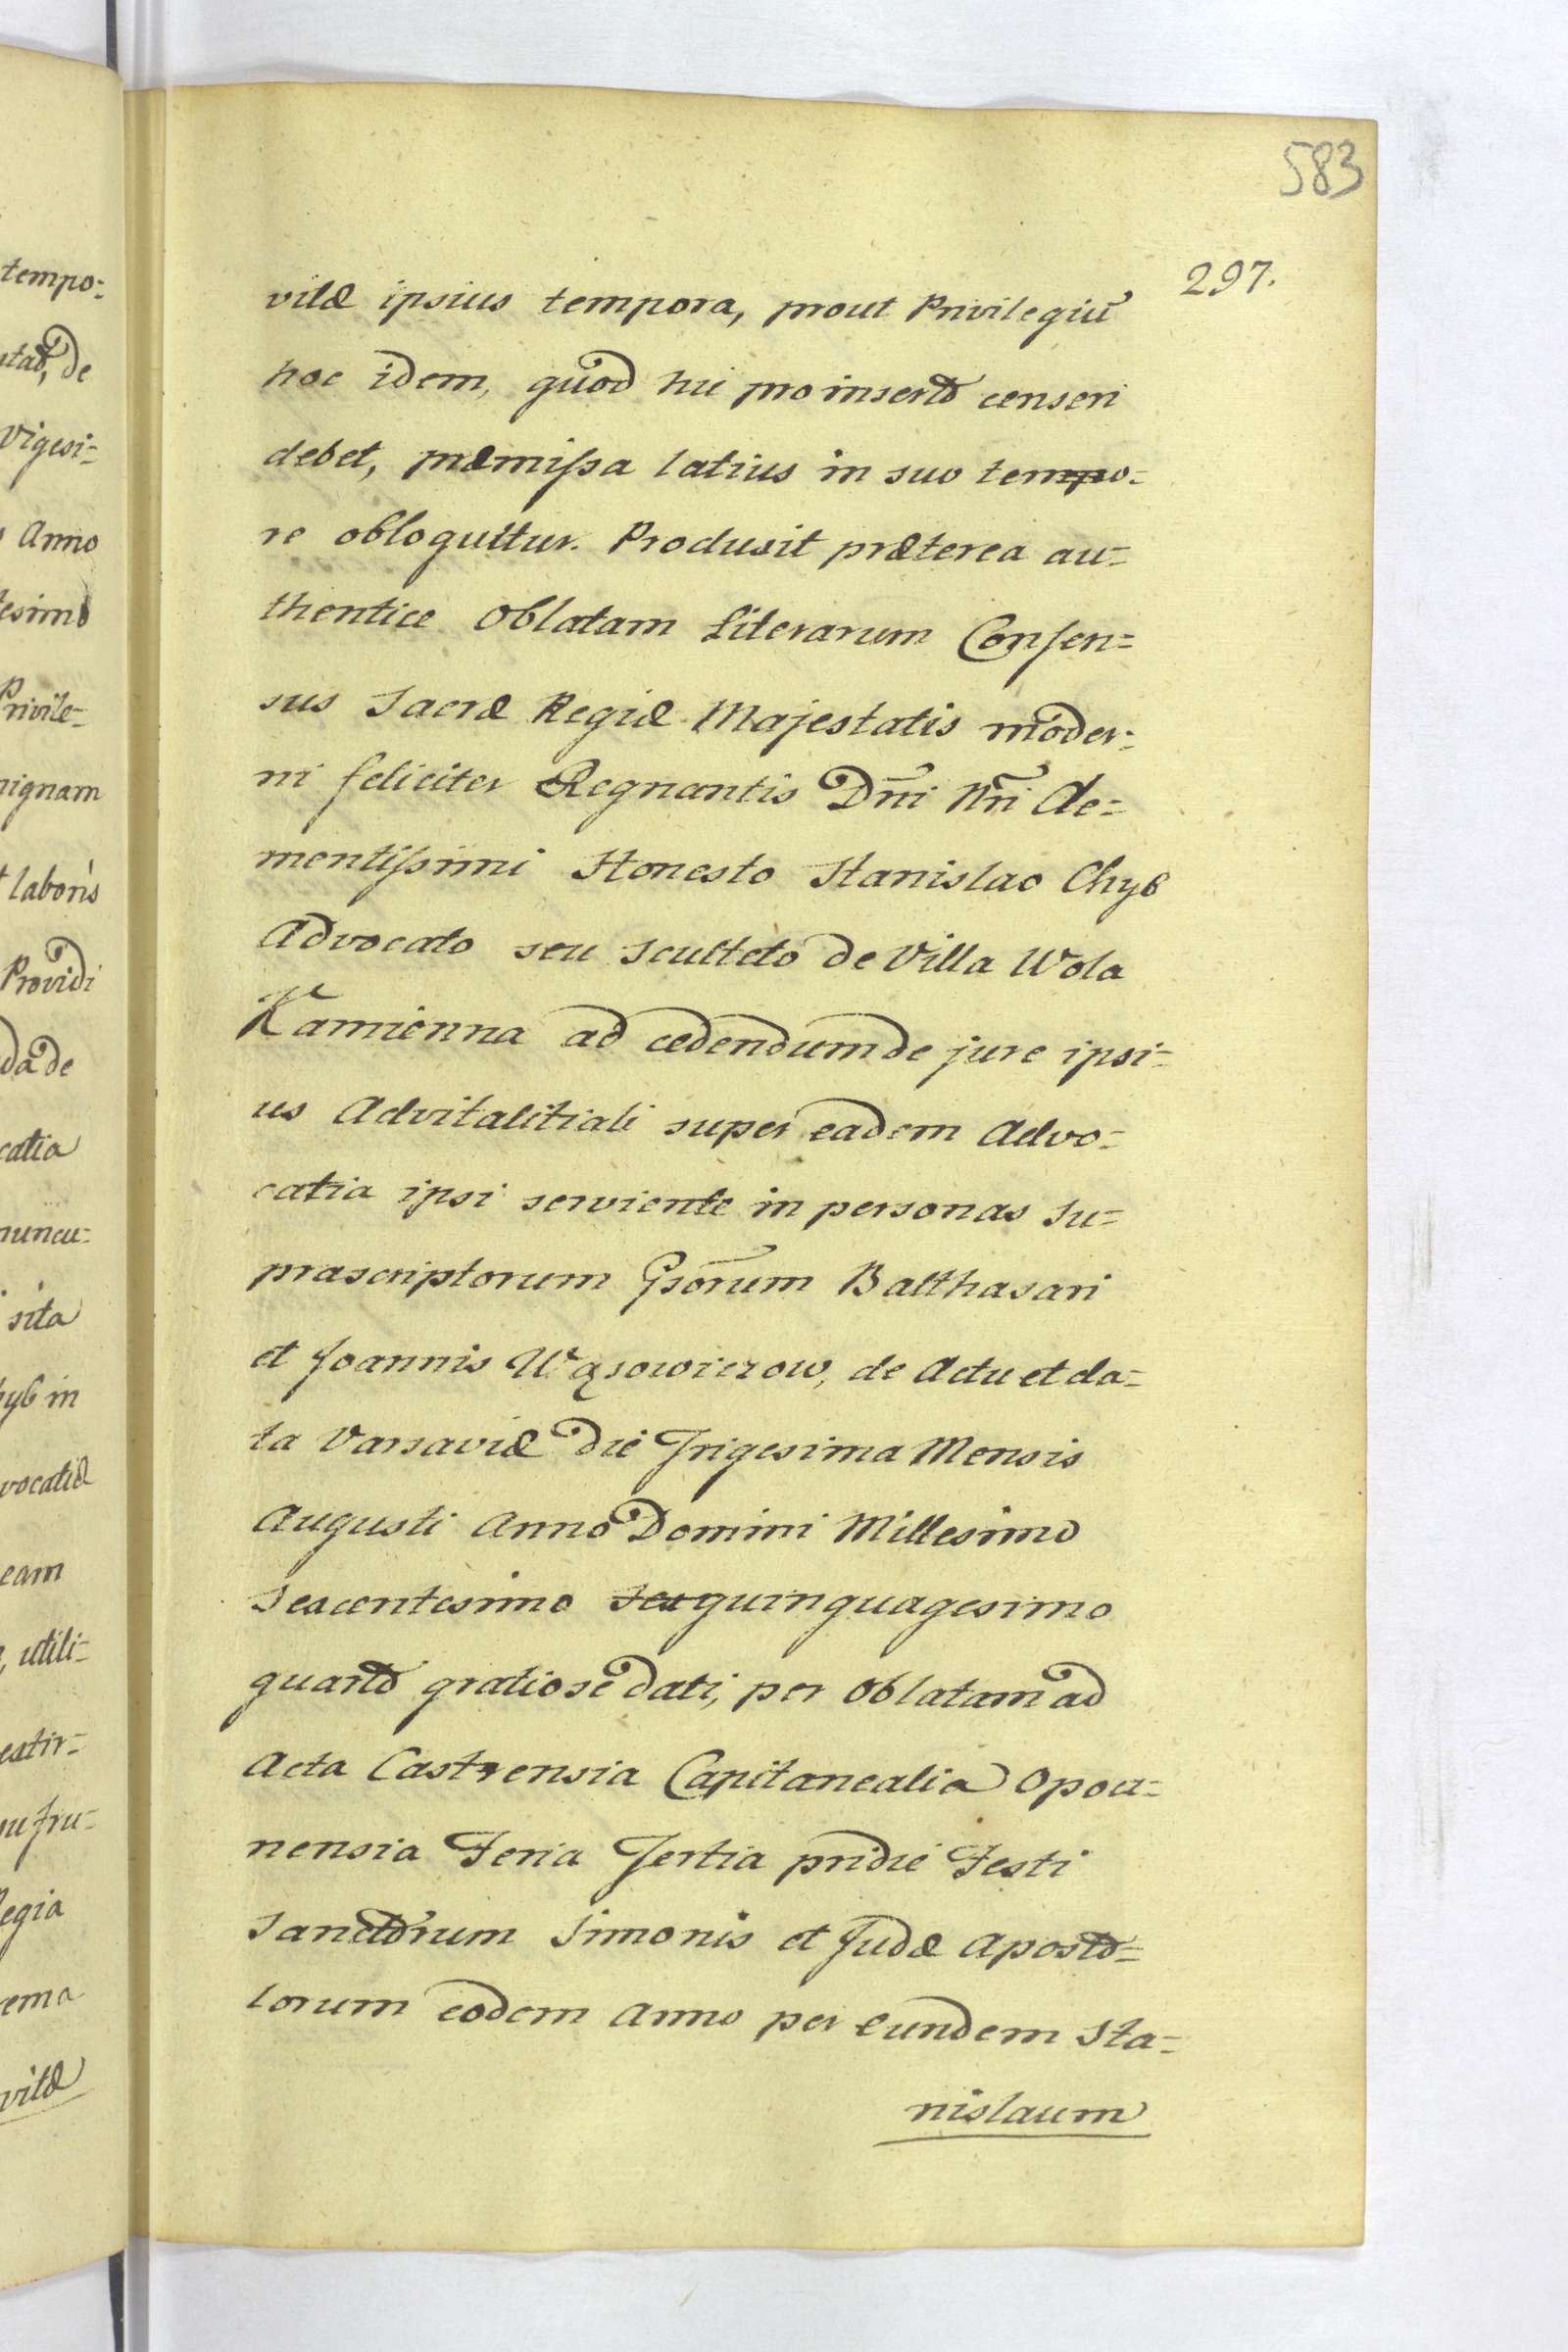 583
297.
vitæ ipsius tempora, prout Privilegiū
hoc idem, quod hii pro inserto censeri
debet, præmissa latius in suo tempo=
re obloquttur. Produxit præterea au=
thentice Oblatam Literarum Consen=
sus Sacræ Regiæ Majestatis moder=
ni feliciter Regnantis Dn̄i Nr̄i Cle=
mentissimi Honesto Stanislao Chyb
Advocato seu Sculteto de Villa Wola
Kamienna ad cedendum de jure ipsi=
us Advitalitiali super eadem Advo=
catia ipsi serviente in personas su=
prascriptorum Gsōrum Balthasari
et Joannis Wąsowiczow, de Actu et da=
ta Varsaviæ die Trigesima Mensis
Augusti Anno Domini Millesimo
Sexcentesimo sex quinquagesimo
quarto gratiose dati, per Oblatam ad
Acta Castrensia Capitanealia Opocz=
nensia Feria Tertia pridie Festi
Sanctorum Simonis et Judæ Aposto=
lorum eodem Anno per eundem Sta=
nislaum
tempo=
de
Vigesi=
Anno
esimo
Privile=
nignam
laboris
Providi
da de
catia
nuncu=
sita
hyb in
vocatiæ
eam
utili=
extir=
su fru=
Regia
rema
vitæ